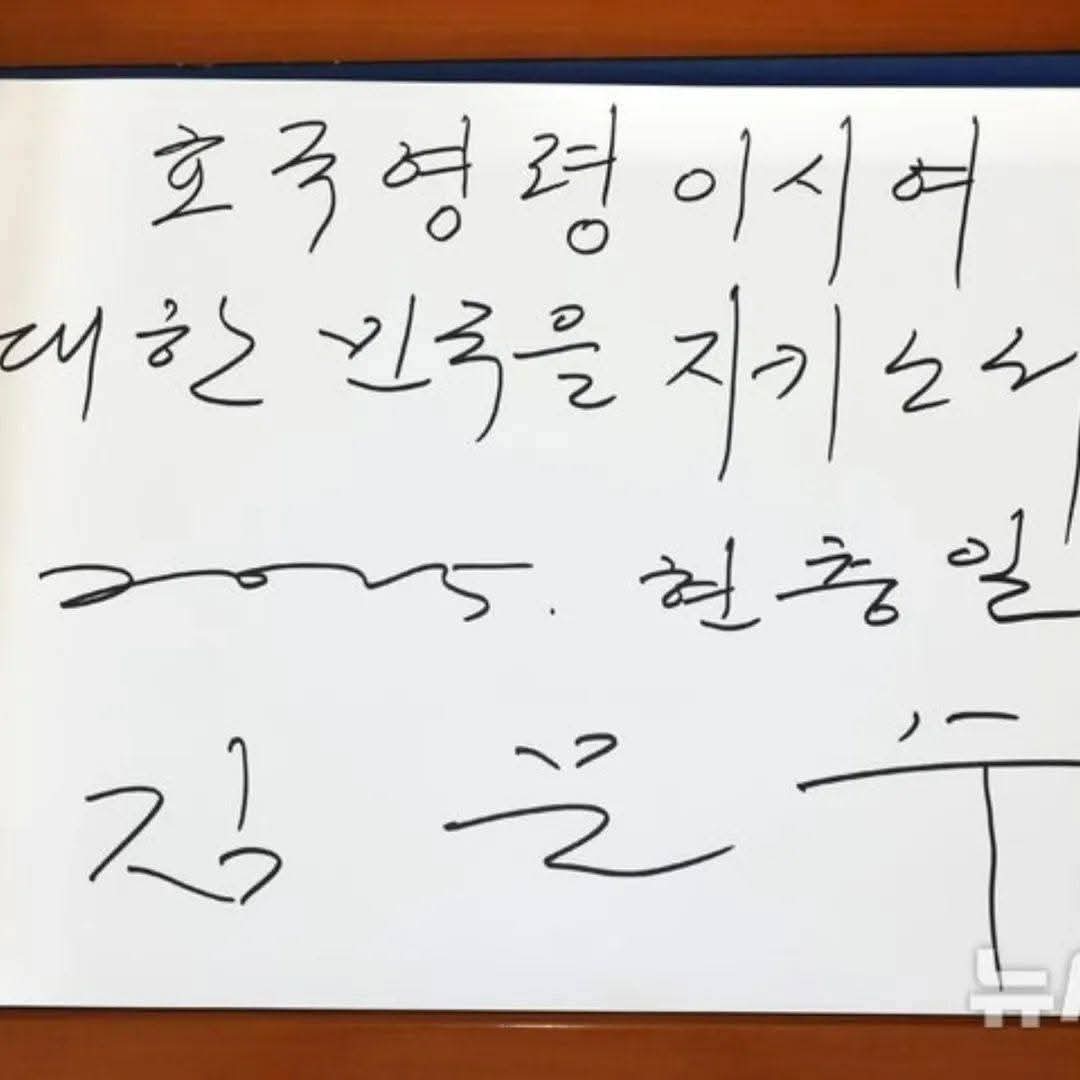 호국영령이시여
대한민국을 지키소서
2025. 현충일
김문수
뉴